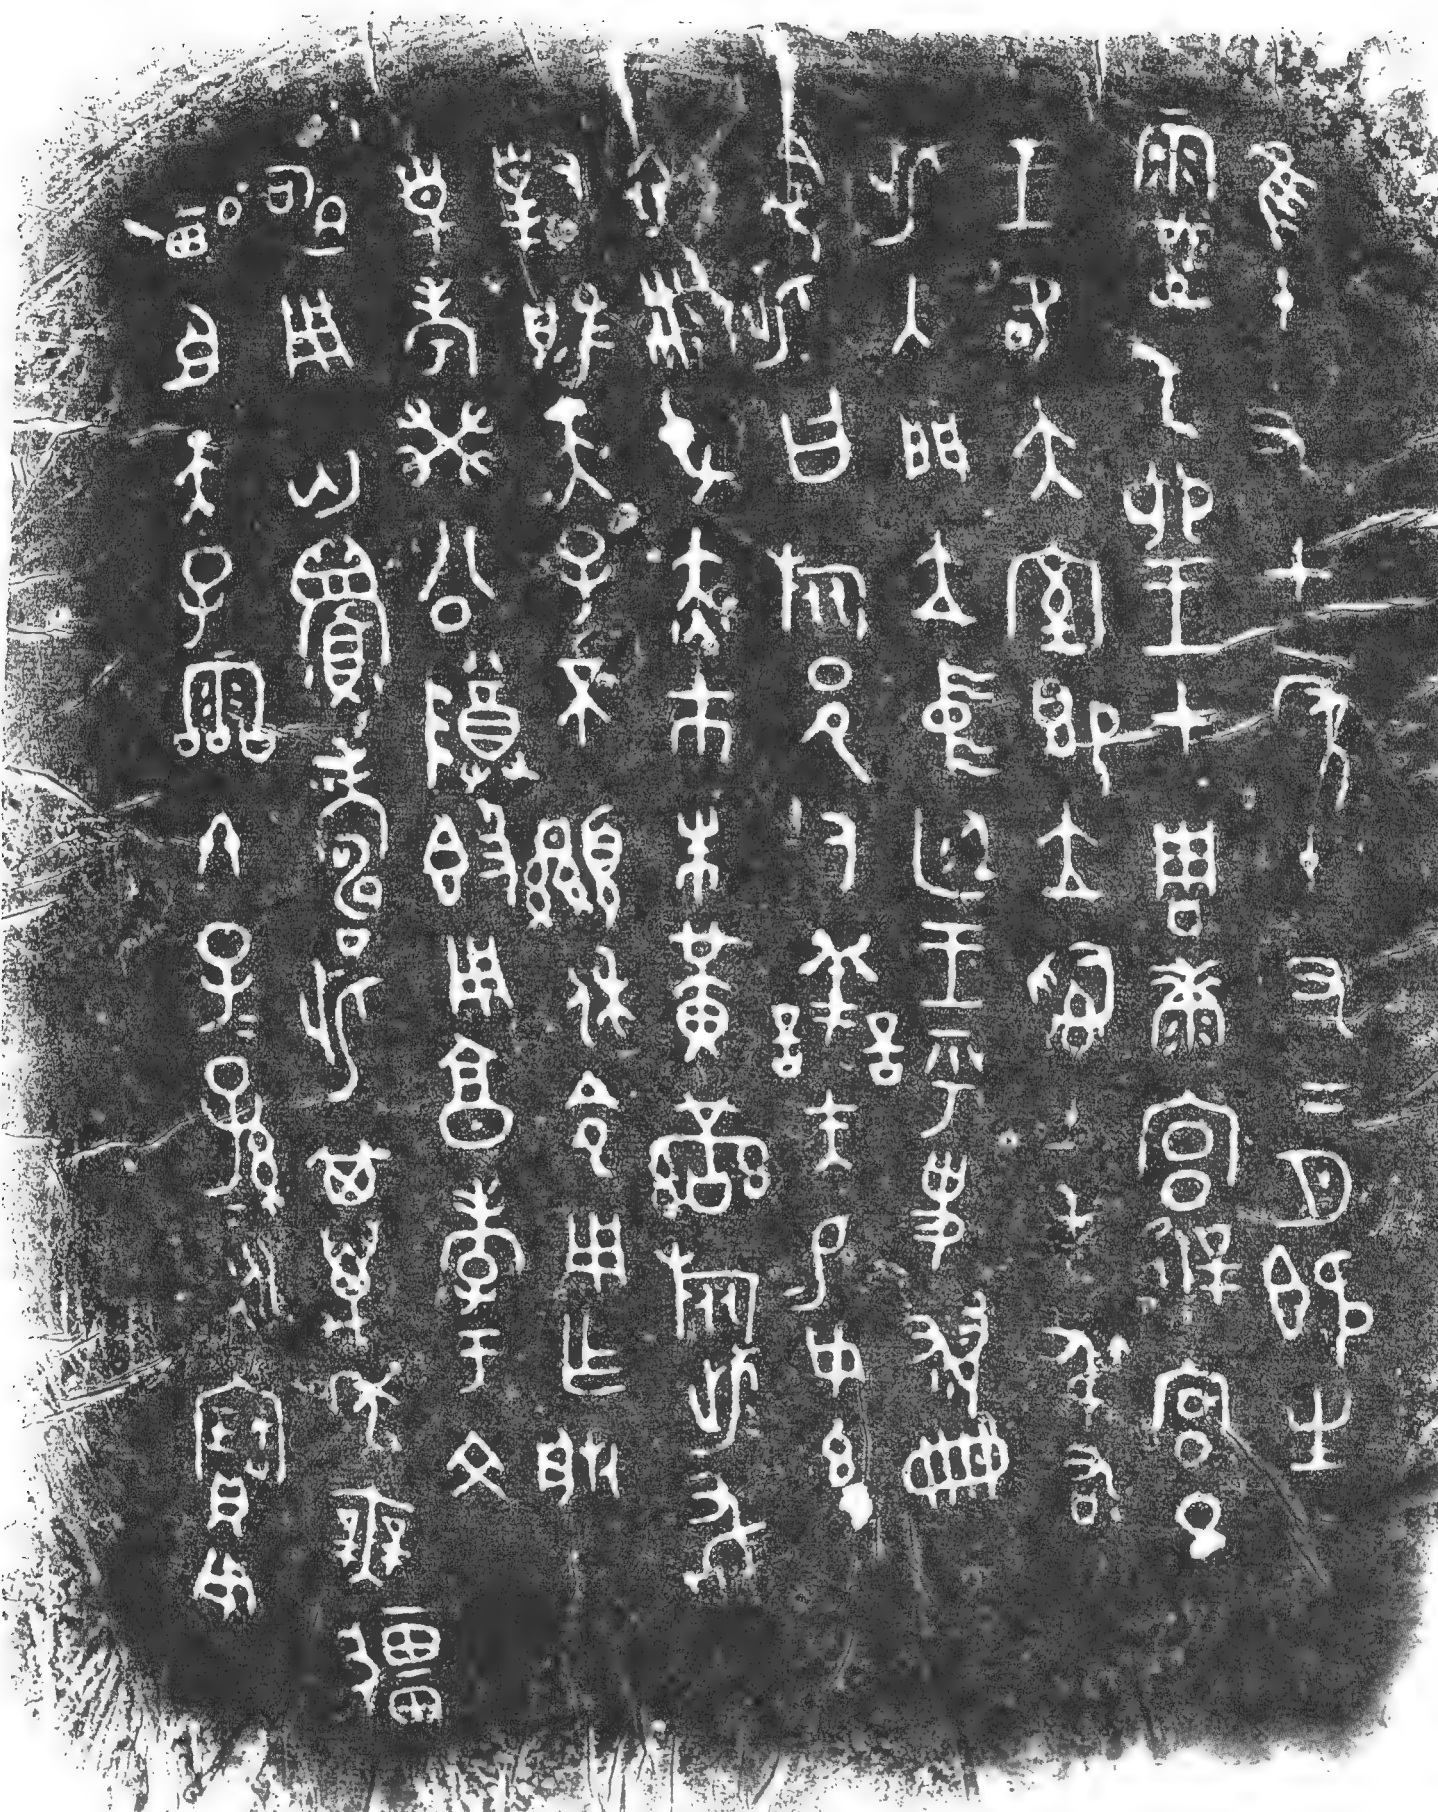 隹十又七年十又二月既生
霸乙卯王才周康宫徲宫旦
王各大室即立司土毛弔右
此入門立中廷王乎史翏册
令此曰旅邑人善夫易女玄
衣黹屯赤巿朱黄䜌旅此敢
對揚天子不顯休令用乍朕
皇考癸公尊𣪘用亯孝于文
申用匄眉壽此其萬年無彊
畯臣天子霝冬子=孫=永寶用